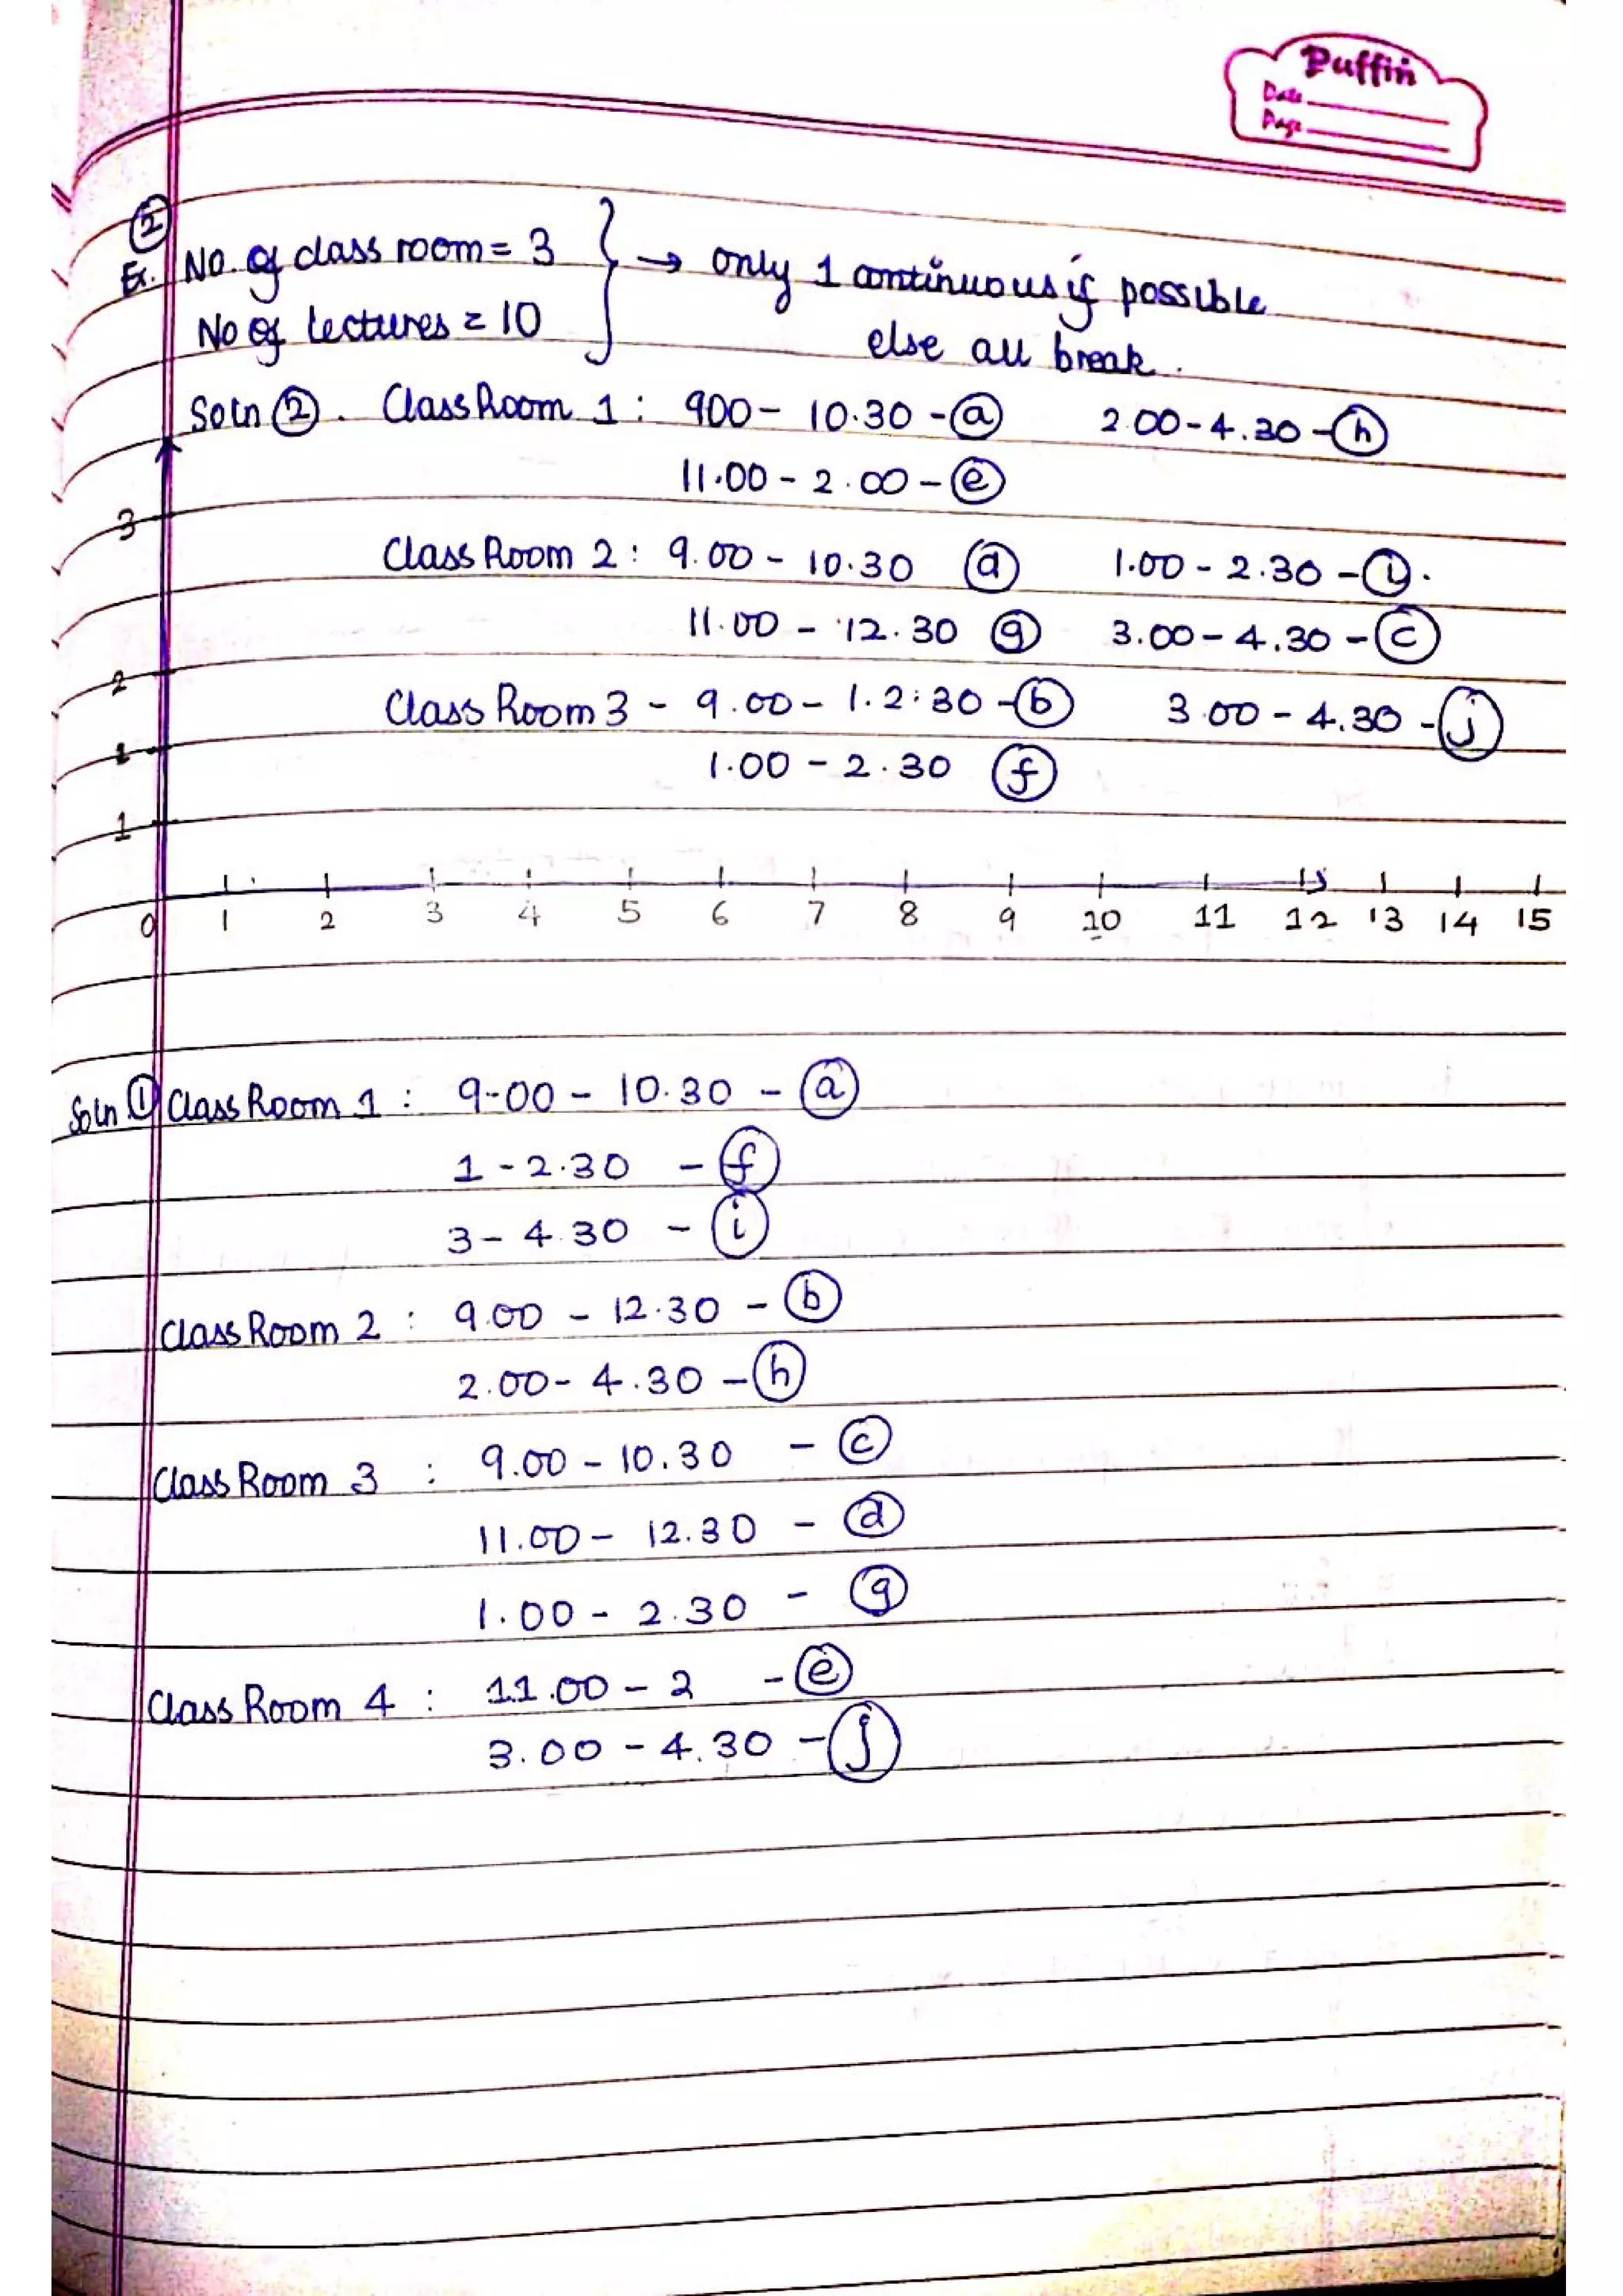 Puffin
Date
Page
②
Ex. No. of class room = 3 } → only 1 continuous if possible
No of lectures = 10 else all break.
Soln ② . Class Room 1 : 900 - 10.30 - ⓐ 2.00 - 4.30 - ⓗ
11.00 - 2.00 - ⓔ
3
Class Room 2 : 9.00 - 10.30 ⓓ 1.00 - 2.30 - ⓘ.
11.00 - 12.30 ⓖ 3.00 - 4.30 - ⓒ
2
Class Room 3 - 9.00 - 1.2:30 - ⓑ 3.00 - 4.30 - ⓙ
1.00 - 2.30 ⓕ
1
0 1 2 3 4 5 6 7 8 9 10 11 12 13 14 15
Soln ① Class Room 1 : 9-00 - 10.30 - ⓐ
1 - 2.30 - ⓕ
3 - 4.30 - ⓘ
Class Room 2 : 9.00 - 12.30 - ⓑ
2.00 - 4.30 - ⓗ
Class Room 3 : 9.00 - 10.30 - ⓒ
11.00 - 12.30 - ⓓ
1.00 - 2.30 - ⓖ
Class Room 4 : 11.00 - 2 - ⓔ
3.00 - 4.30 - ⓙ